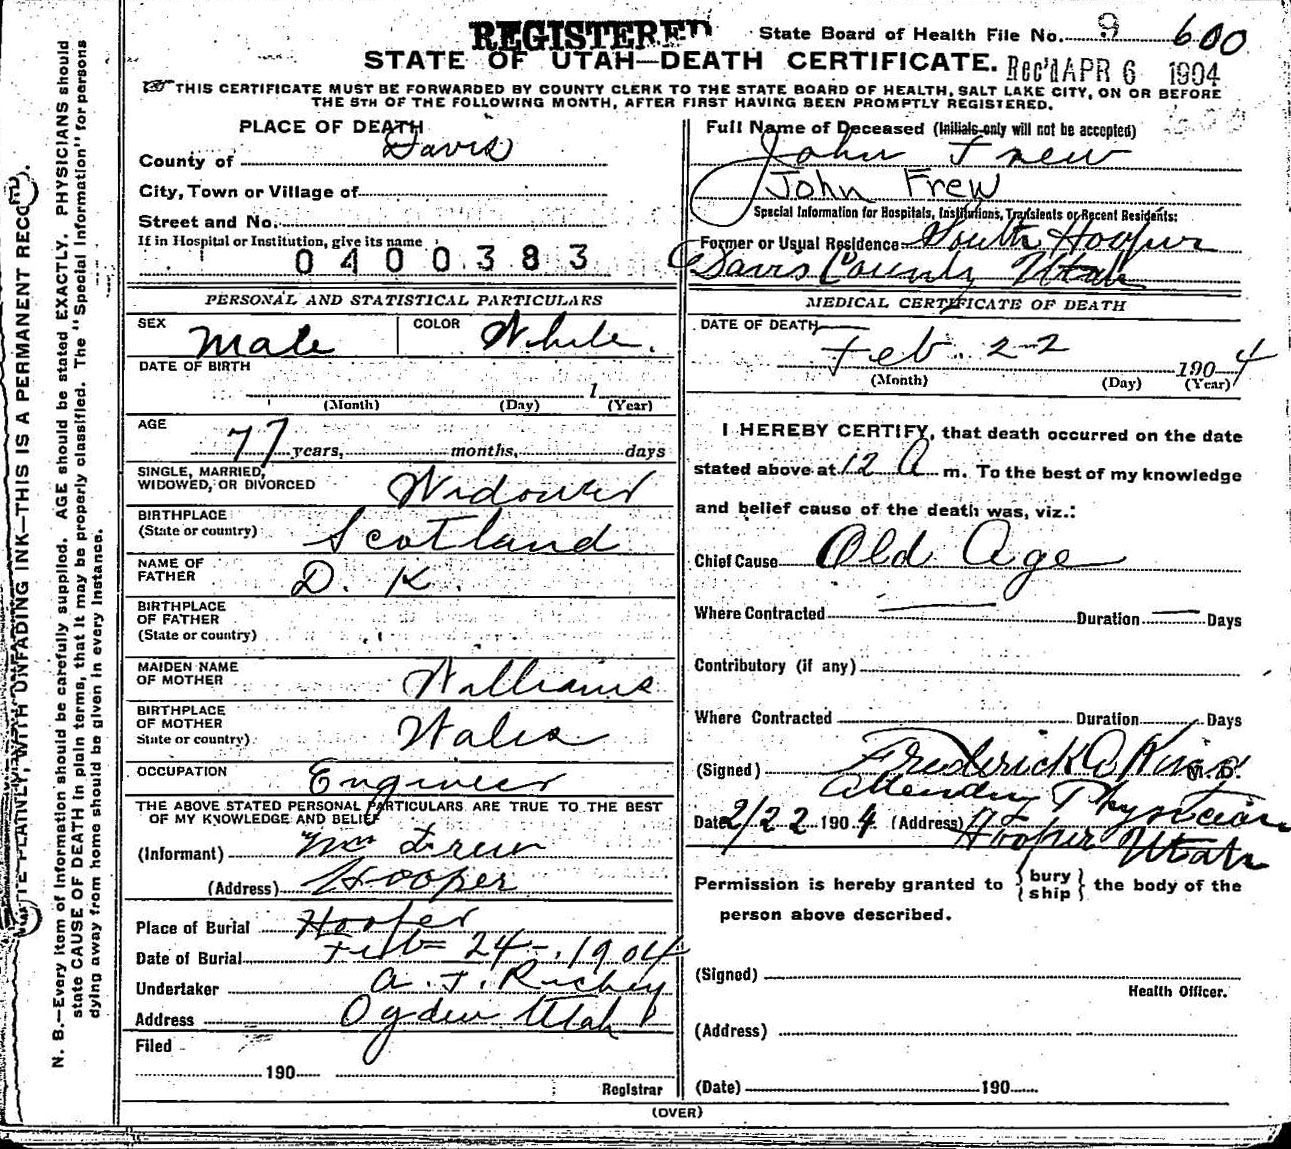 REGISTERED
State Board of Health File No. 9 600
STATE OF UTAH—DEATH CERTIFICATE.
Rec'd APR 6 1904
THIS CERTIFICATE MUST BE FORWARDED BY COUNTY CLERK TO THE STATE BOARD OF HEALTH, SALT LAKE CITY, ON OR BEFORE
THE 5TH OF THE FOLLOWING MONTH, AFTER FIRST HAVING BEEN PROMPTLY REGISTERED.
PLACE OF DEATH
County of Davis
City, Town or Village of
Street and No.
If in Hospital or Institution, give its name
0400383
PERSONAL AND STATISTICAL PARTICULARS
SEX Male COLOR White.
DATE OF BIRTH
1
(Month) (Day) (Year)
AGE
77 years, months, days
SINGLE, MARRIED,
WIDOWED, OR DIVORCED Widower
BIRTHPLACE
(State or country) Scotland
NAME OF
FATHER D. K.
BIRTHPLACE
OF FATHER
(State or country)
MAIDEN NAME
OF MOTHER Williams
BIRTHPLACE
OF MOTHER
State or country) Wales
OCCUPATION Engineer
THE ABOVE STATED PERSONAL PARTICULARS ARE TRUE TO THE BEST
OF MY KNOWLEDGE AND BELIEF
(Informant) Wm Frew
(Address) Hooper
Place of Burial Hooper
Date of Burial Feb 24 - 1904
Undertaker A. J. Richey
Address Ogden Utah
Filed
190
Registrar
Full Name of Deceased (Initials only will not be accepted)
John Frew
John Frew
Special Information for Hospitals, Institutions, Transients or Recent Residents:
Former or Usual Residence South Hooper
Davis County Utah
MEDICAL CERTIFICATE OF DEATH
DATE OF DEATH
Feb. 22 1904
(Month) (Day) (Year)
I HEREBY CERTIFY, that death occurred on the date
stated above at 12 A m. To the best of my knowledge
and belief cause of the death was, viz.:
Chief Cause Old Age
Where Contracted Duration Days
Contributory (if any)
Where Contracted Duration Days
(Signed) Frederick D King M.D.
Attending Physician
Date 2/22 1904 (Address) Hooper Utah
Permission is hereby granted to { bury
ship } the body of the
person above described.
(Signed)
Health Officer.
(Address)
(Date) 190
(OVER)
WRITE PLAINLY, WITH UNFADING INK—THIS IS A PERMANENT RECORD.
N. B.—Every item of information should be carefully supplied. AGE should be stated EXACTLY. PHYSICIANS should
state CAUSE OF DEATH in plain terms, that it may be properly classified. The "Special Information" for persons
dying away from home should be given in every instance.